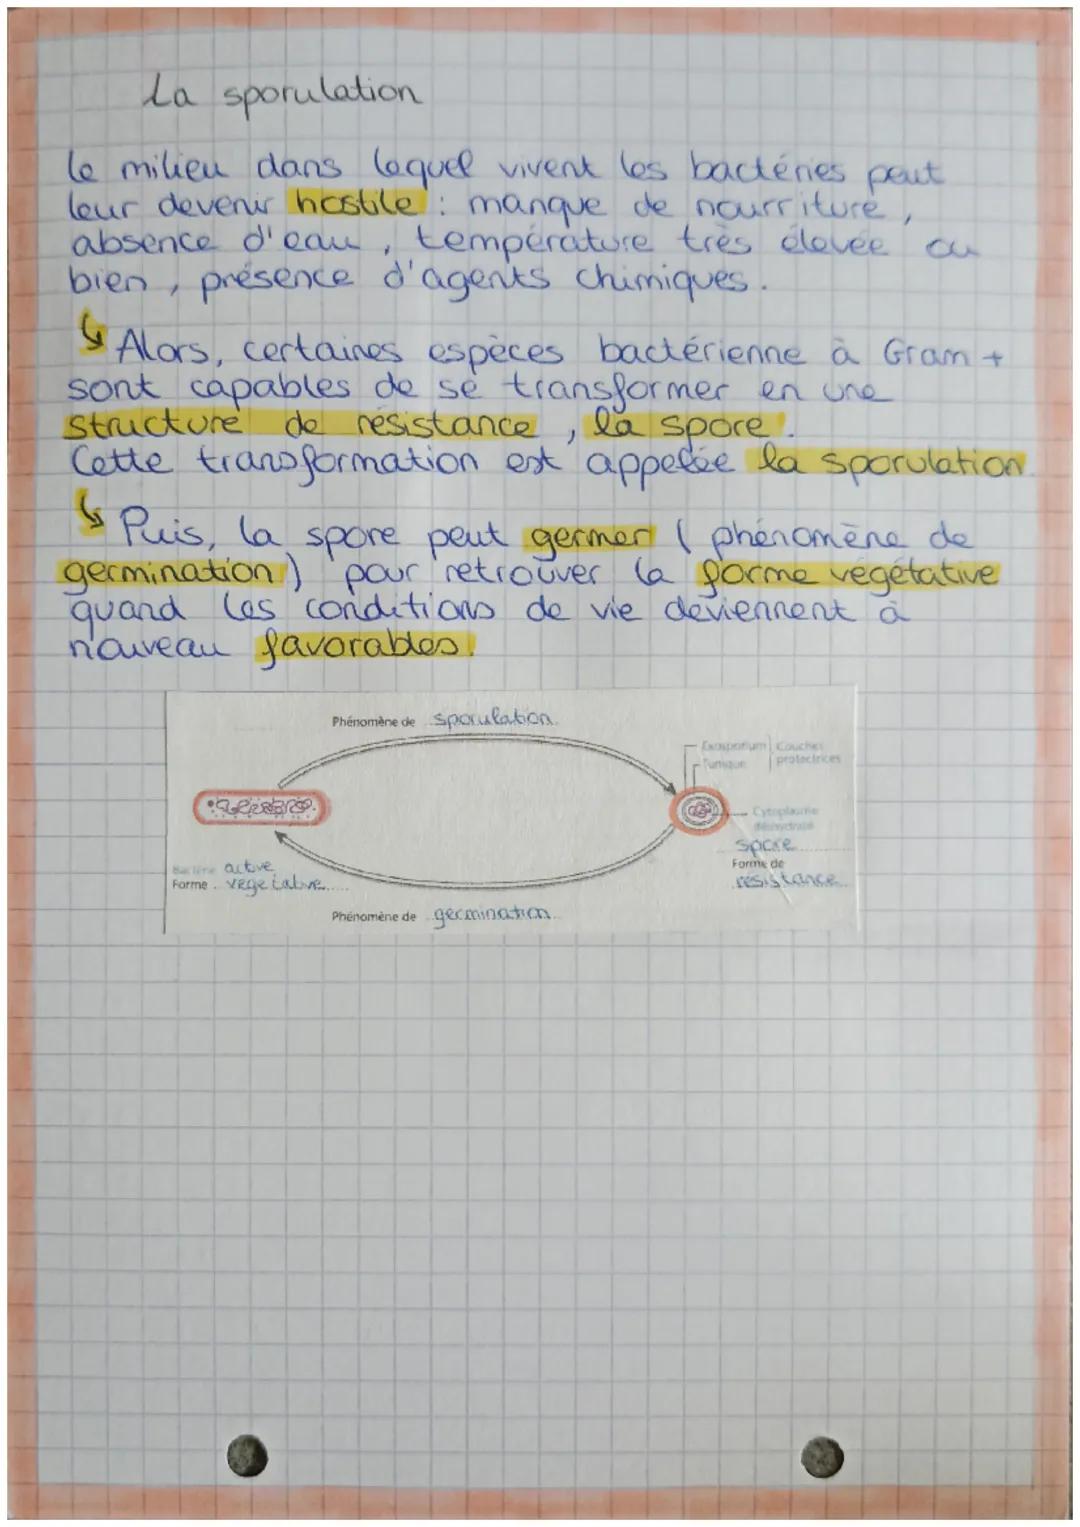 La sporulation
Le milieu dans lequel vivent les bactéries peut
leur devenir hostile : manque de nourriture,
absence d'eau, température très élevée ou
bien, présence d'agents chimiques.
↳ Alors, certaines espèces bactérienne à Gram +
sont capables de se transformer en une
structure de résistance, la spore.
Cette transformation est appelée la sporulation.
↳ Puis, la spore peut germer (phénomène de
germination) pour retrouver la forme végétative
quand les conditions de vie deviennent à
nouveau favorables.
Phénomène de sporulation
Exosporium
Tunique
Couches
protectrices
Cytoplasme
déshydraté
spore
Forme de
résistance
Bactérie active
Forme végétative
Phénomène de germination